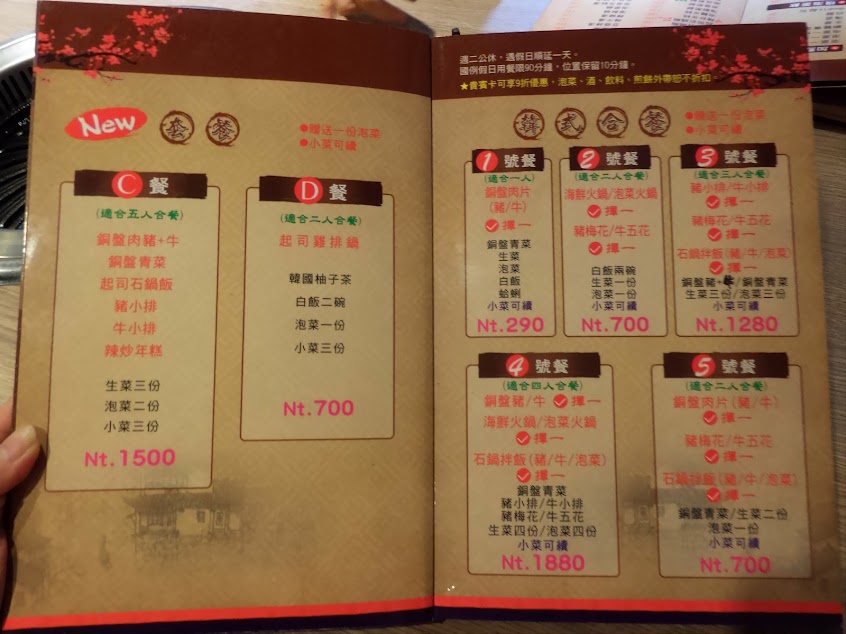 New 套餐
●贈送一份泡菜
●小菜可續
C餐
(適合五人合餐)
銅盤肉豬+牛
銅盤青菜
起司石鍋飯
豬小排
牛小排
辣炒年糕
生菜三份
泡菜二份
小菜三份
Nt.1500
D餐
(適合二人合餐)
起司雞排鍋
韓國柚子茶
白飯二碗
泡菜一份
小菜三份
Nt.700
週二公休，遇假日順延一天。
國例假日用餐限90分鐘，位置保留10分鐘。
★貴賓卡可享9折優惠，泡菜、酒、飲料、煎餅外帶恕不折扣。
韓式合餐
●贈送一份泡菜
●小菜可續
1號餐
(適合一人)
銅盤肉片
(豬/牛)
擇一
銅盤青菜
生菜
泡菜
白飯
蛤蜊
小菜可續
Nt.290
2號餐
(適合二人合餐)
海鮮火鍋/泡菜火鍋
擇一
豬梅花/牛五花
擇一
白飯兩碗
生菜一份
泡菜一份
小菜可續
Nt.700
3號餐
(適合三人合餐)
豬小排/牛小排
擇一
豬梅花/牛五花
擇一
石鍋拌飯(豬/牛/泡菜)
擇一
銅盤豬+牛/銅盤青菜
生菜三份/泡菜三份
小菜可續
Nt.1280
4號餐
(適合四人合餐)
銅盤豬/牛 擇一
海鮮火鍋/泡菜火鍋
擇一
石鍋拌飯(豬/牛/泡菜)
擇一
銅盤青菜
豬小排/牛小排
豬梅花/牛五花
生菜四份/泡菜四份
小菜可續
Nt.1880
5號餐
(適合二人合餐)
銅盤肉片(豬/牛)
擇一
豬梅花/牛五花
擇一
石鍋拌飯(豬/牛/泡菜)
擇一
銅盤青菜/生菜二份
泡菜一份
小菜可續
Nt.700